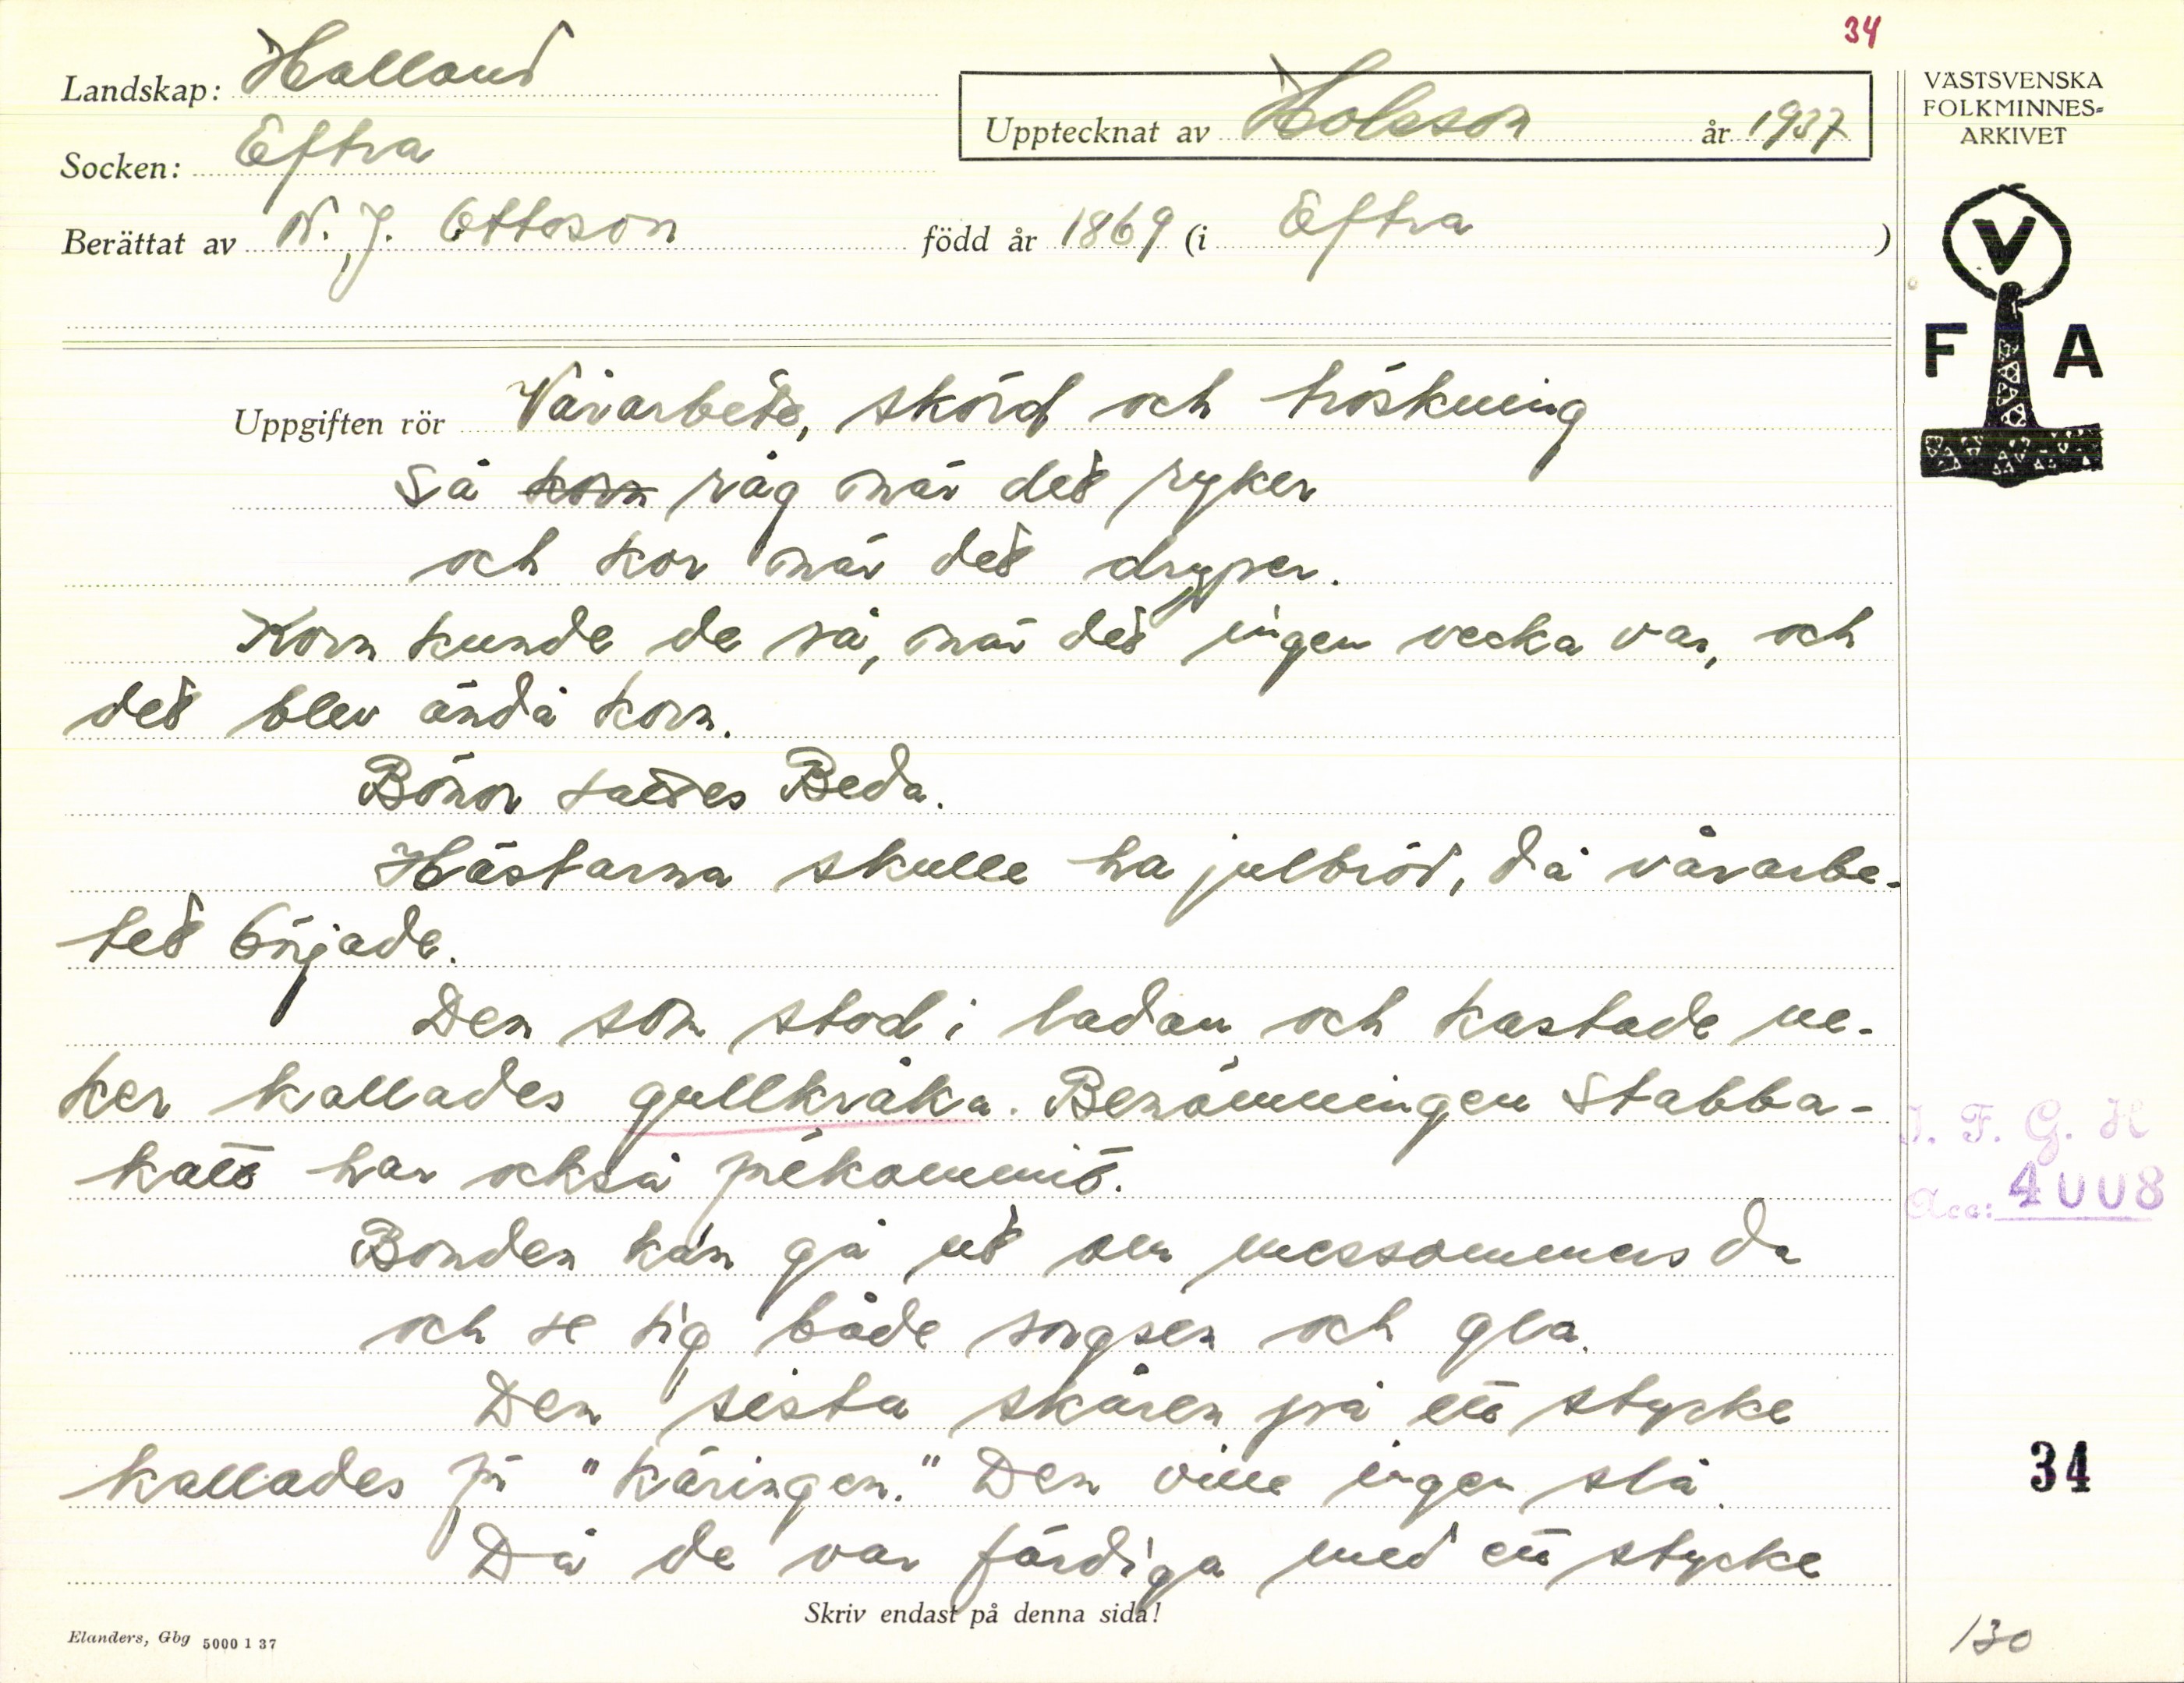 34
Landskap: Halland
Upptecknat av Holsson år 1937
Socken: Eftra
Berättat av N. J. Ottoson född år 1869 (i Eftra )
VÄSTSVENSKA
FOLKMINNES-
ARKIVET
V
F A
Uppgiften rör Vårarbete, skörd och tröskning
Så korn råg när det ryker
och kor när det dryper.
Korn kunde de så, när det ingen vecka var, och
det blev ändå korn.
Bönor sattes Beda.
Hästarna skulle ha julbröd, då vårarbe-
tet började.
Den som stod i ladan och kastade ne-
ker kallades gullkråka. Benämningen Stabba-
katt har också förekommit.
I. F. G. H
Acc: 4008
Bonden kan gå ut om messommers da
och se sig både sorgsen och gla.
Den sista skåren på ett stycke
kallades för "käringen." Den ville ingen slå.
34
Då de var färdiga med ett stycke
Skriv endast på denna sida!
Elanders, Gbg 5000 1 37
130